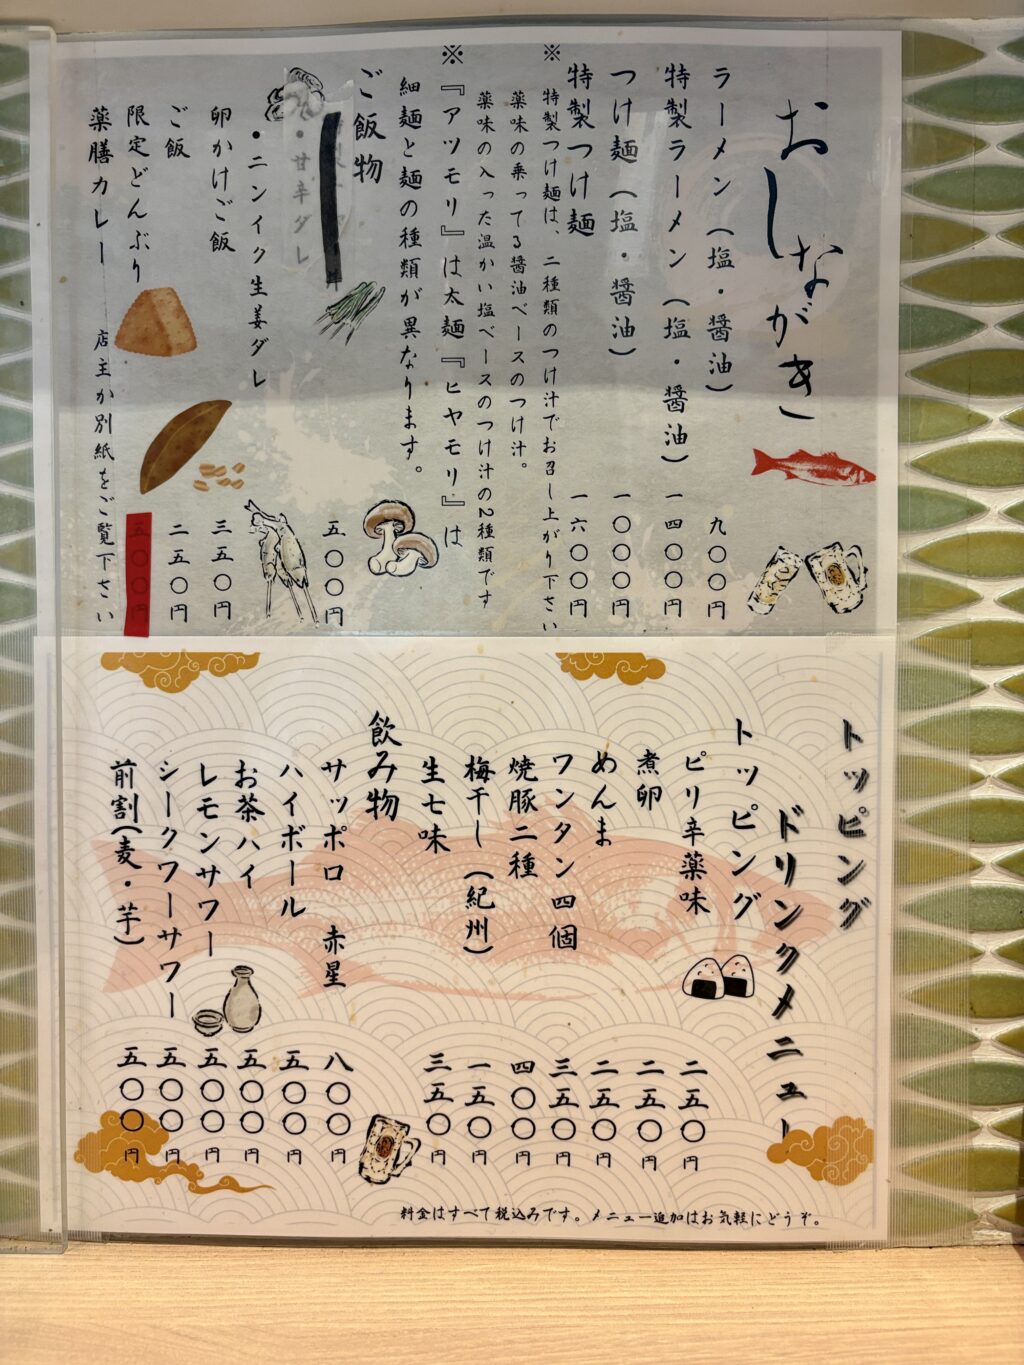 おしながき
ラーメン（塩・醤油） 九〇〇円
特製ラーメン（塩・醤油） 一四〇〇円
つけ麺（塩・醤油） 一〇〇〇円
特製つけ麺 一六〇〇円
※特製つけ麺は、二種類のつけ汁でお召し上がり下さい
薬味の乗ってる醤油ベースのつけ汁。
薬味の入った温かい塩ベースのつけ汁の2種類です
※『アツモリ』は太麺『ヒヤモリ』は
細麺と麺の種類が異なります。
ご飯物
五〇〇円
・甘辛ダレ
・ニンイク生姜ダレ
卵かけご飯 三五〇円
ご飯 二五〇円
限定どんぶり 五〇〇円
薬膳カレー 店主か別紙をご覧下さい
トッピング
ドリンクメニュー
トッピング
ピリ辛薬味 二五〇円
煮卵 二五〇円
めんま 二五〇円
ワンタン四個 三五〇円
焼豚二種 四〇〇円
梅干し（紀州） 一五〇円
生七味 三五〇円
飲み物
サッポロ 赤星 八〇〇円
ハイボール 五〇〇円
お茶ハイ 五〇〇円
レモンサワー 五〇〇円
シークワーサワー 五〇〇円
前割（麦・芋） 五〇〇円
料金はすべて税込みです。メニュー追加はお気軽にどうぞ。